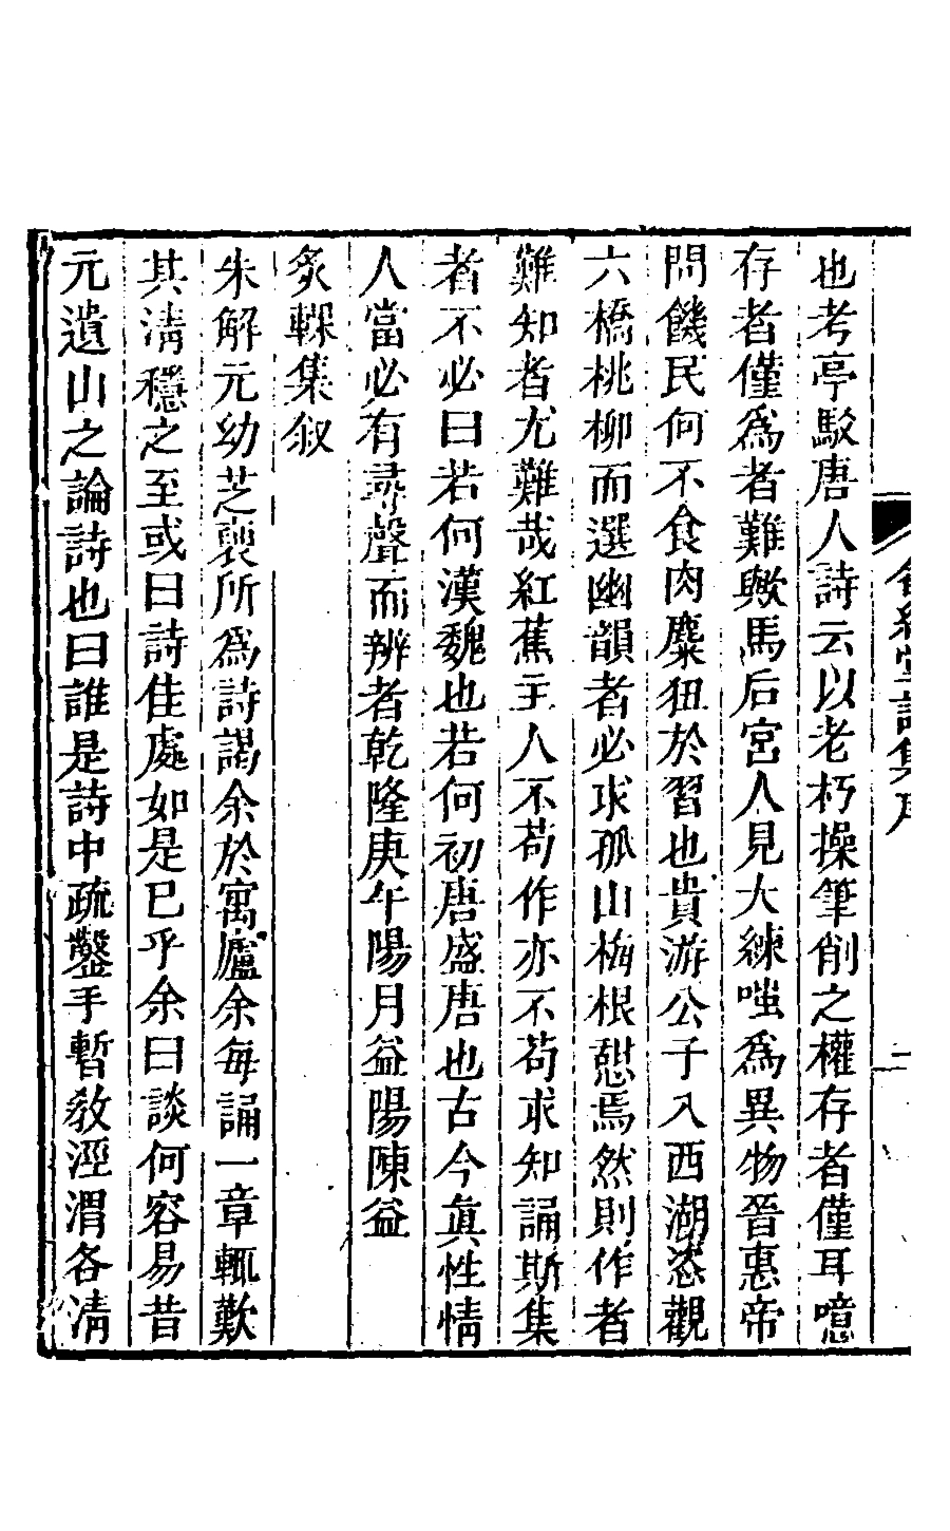 也考亭駁唐人詩云以老朽操筆削之權存者僅耳噫
存者僅爲者難歟馬后宮人見大練嗤爲異物晉惠帝
問饑民何不食肉麋狃於習也貴游公子入西湖恣觀
六橋桃柳而選幽韻者必求孤山梅根憇焉然則作者
難知者尤難哉紅蕉主人不苟作亦不苟求知誦斯集
者不必曰若何漢魏也若何初唐盛唐也古今眞性情
人當必有尋聲而辨者乾隆庚午陽月益陽陳益
炙輠集叙
朱解元幼芝裒所爲詩謁余於寓廬余每誦一章輒歎
其淸穩之至或曰詩佳處如是巳乎余曰談何容易昔
元遺山之論詩也曰誰是詩中疏鑿手暫敎涇渭各淸